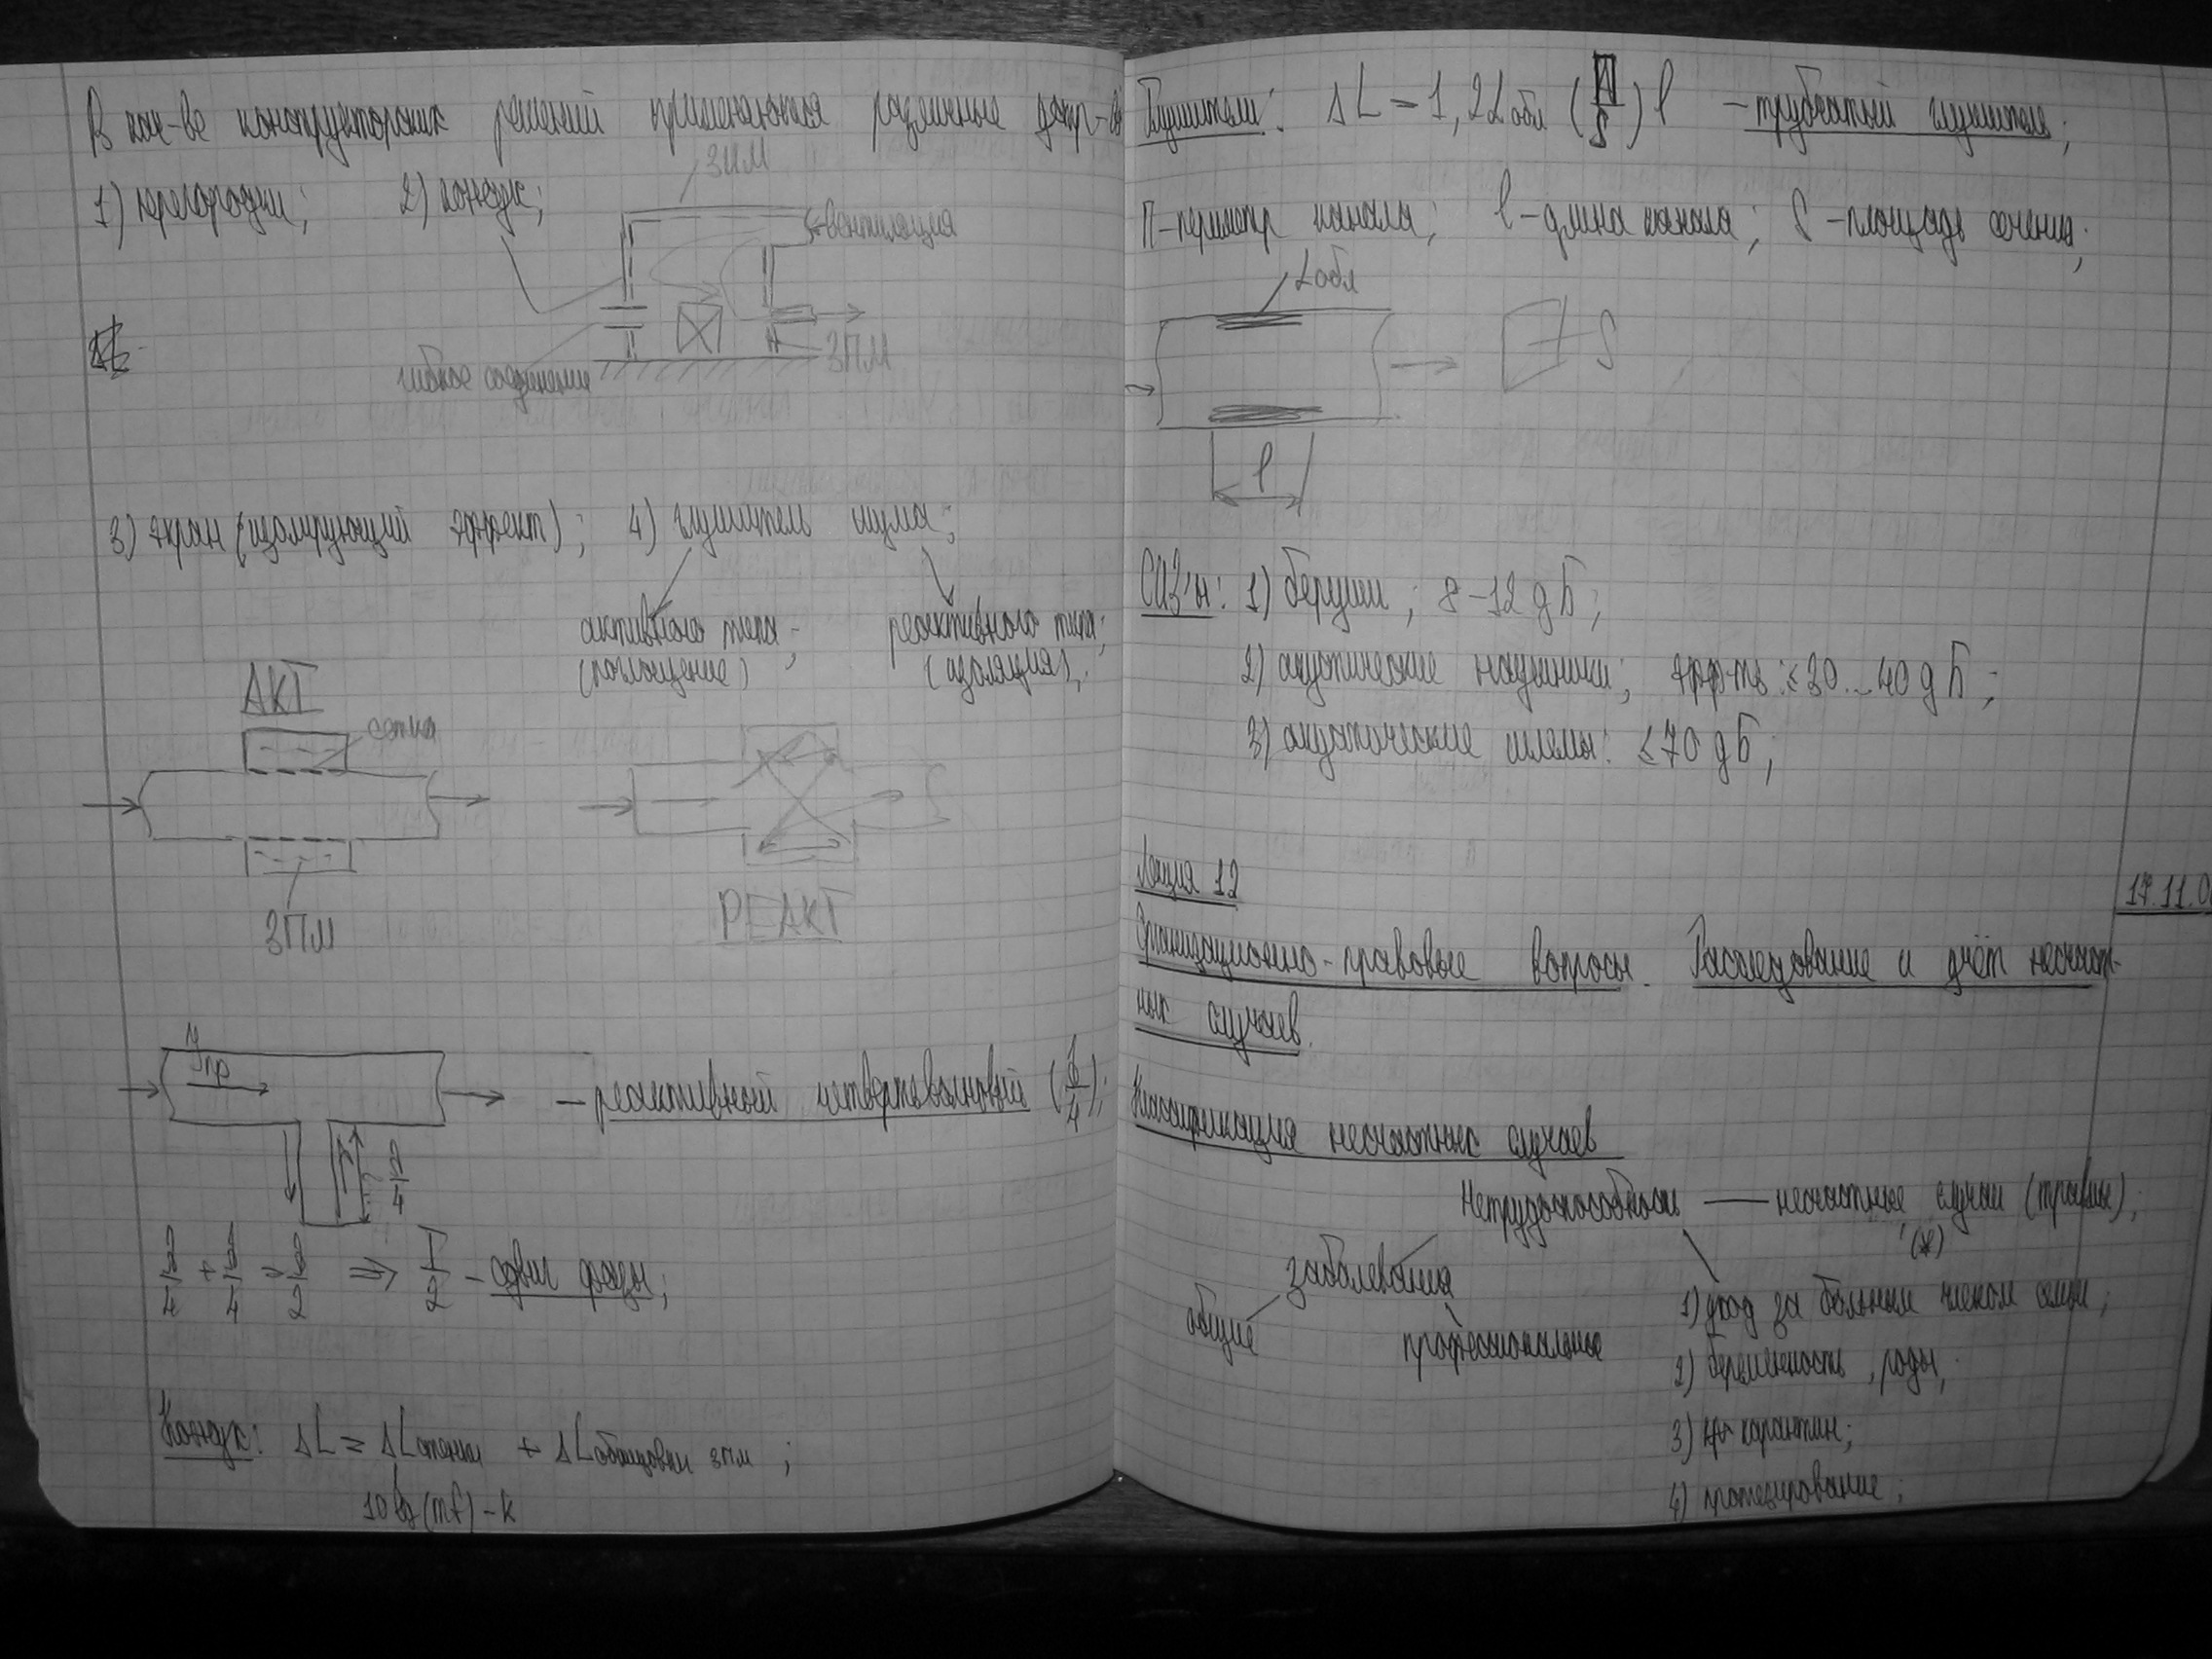 В кач-ве конструкторских решений применяются различные устр-ва
1) перегородки; 2) кожух;
ЗПМ
вентиляция
гибкое соединение
ЗПМ
3) экран (изолирующий эффект); 4) глушитель шума;
активного типа; реактивного типа;
(поглощение) (изоляция);
АКТ
сетка
ЗПМ
РЕАКТ
Jпр
– реактивный четвертьволновый
4
2 – сдвиг фазы;
Кожух: ΔL = ΔLстенки + ΔLоблицовки ЗПМ;
10 lg(mf) – k
Глушители: ΔL = 1,2 αобл (П/S) l – трубчатый глушитель;
П – периметр канала; l – длина канала; S – площадь сечения;
αобл
S
l
СИЗ'ы: 1) беруши; 8–12 дБ;
2) акустические наушники; эфф-ть: ≤ 30...40 дБ;
3) акустические шлемы: ≤ 70 дБ;
Лекция 12
17.11.0
Организационно-правовые вопросы. Расследование и учёт несчаст-
ных случаев.
Классификация несчастных случаев
Нетрудоспособность — несчастные случаи (травмы);
(*)
заболевания
общие
профессиональные
1) уход за больным членом семьи;
2) беременность, роды;
3) карантин;
4) протезирование;